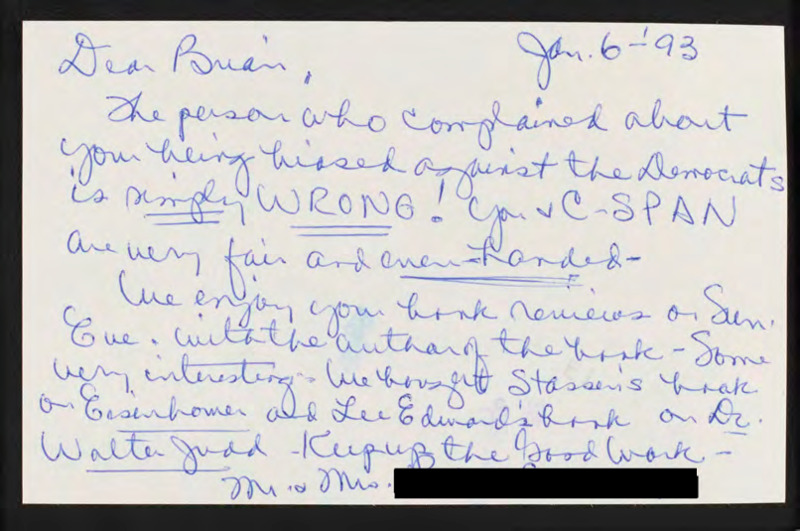 Jan. 6-'93
Dear Brian,
The person who complained about
your being biased against the Democrats
is simply WRONG! You & C-SPAN
are very fair and even-handed-
We enjoy your book reviews on Sun.
Eve. with the author of the book - Some
very interesting - We bought Stassen's book
on Eisenhower and Lee Edward's book on Dr.
Walter Judd - Keep up the Good Work -
Mr. & Mrs.